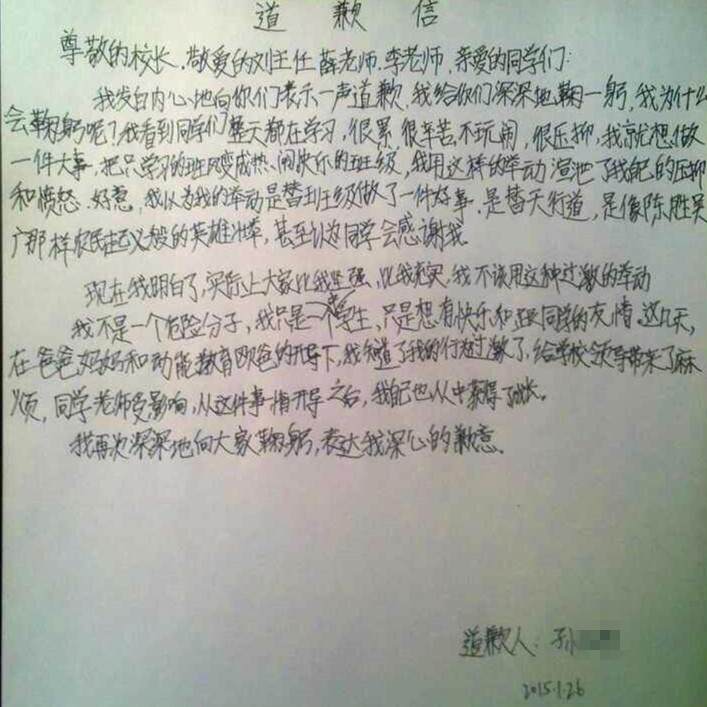 道歉信
尊敬的校长、敬爱的刘主任薛老师、李老师,亲爱的同学们:
我发自内心地向你们表示一声道歉,我给你们深深地鞠一躬,我为什么
会鞠躬呢?我看到同学们整天都在学习,很累很辛苦,不玩闹,很压抑,我就想做
一件大事,把只学习的班风变成热闹快乐的班级,我用这样的举动渲泄了我自己的压抑
和愤怒.好意,我以为我的举动是替班级做了一件好事.是替天行道,是像陈胜吴
广那样农民起义般的英雄壮举,甚至认为同学会感谢我.
现在我明白了,实际上大家比我坚强,比我充实,我不该用这种过激的举动
我不是一个危险分子,我只是一个学生,只是想有快乐和同学的友情.这几天,
在爸爸妈妈和动能教育欧爸的开导下,我知道了我的行为过激了,给学校领导带来了麻
烦,同学老师受影响,从这件事情开导之后,我自己也从中获得了成长。
我再次深深地向大家鞠躬,表达我深心的歉意.
道歉人:孙
2015.1.26